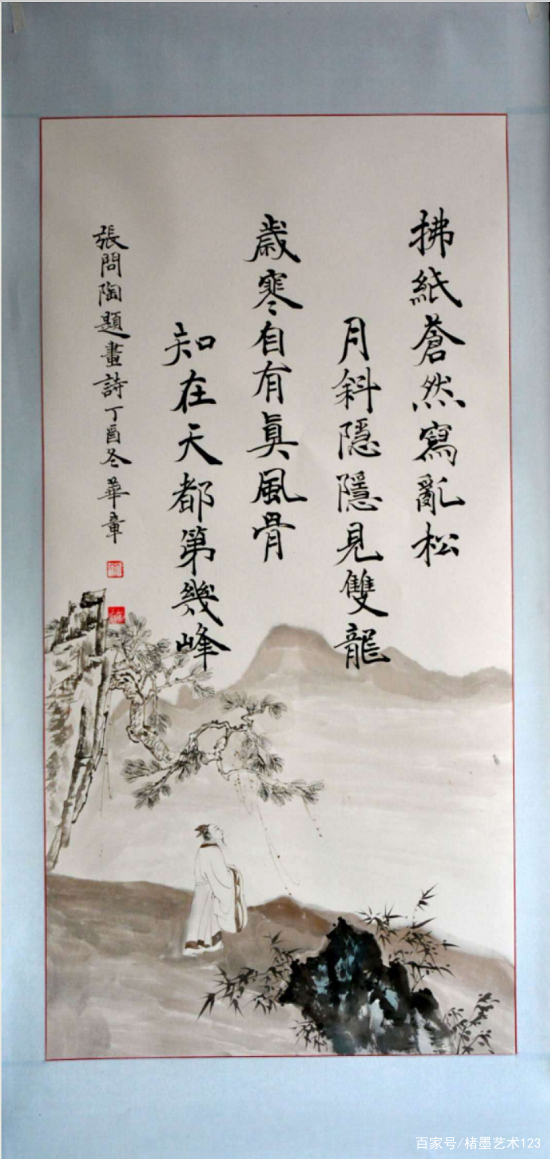 拂紙蒼然寫亂松
月斜隱隱見雙龍
歲寒自有真風骨
知在天都第幾峰
張問陶題畫詩丁酉冬華章
百家号/楮墨艺术123